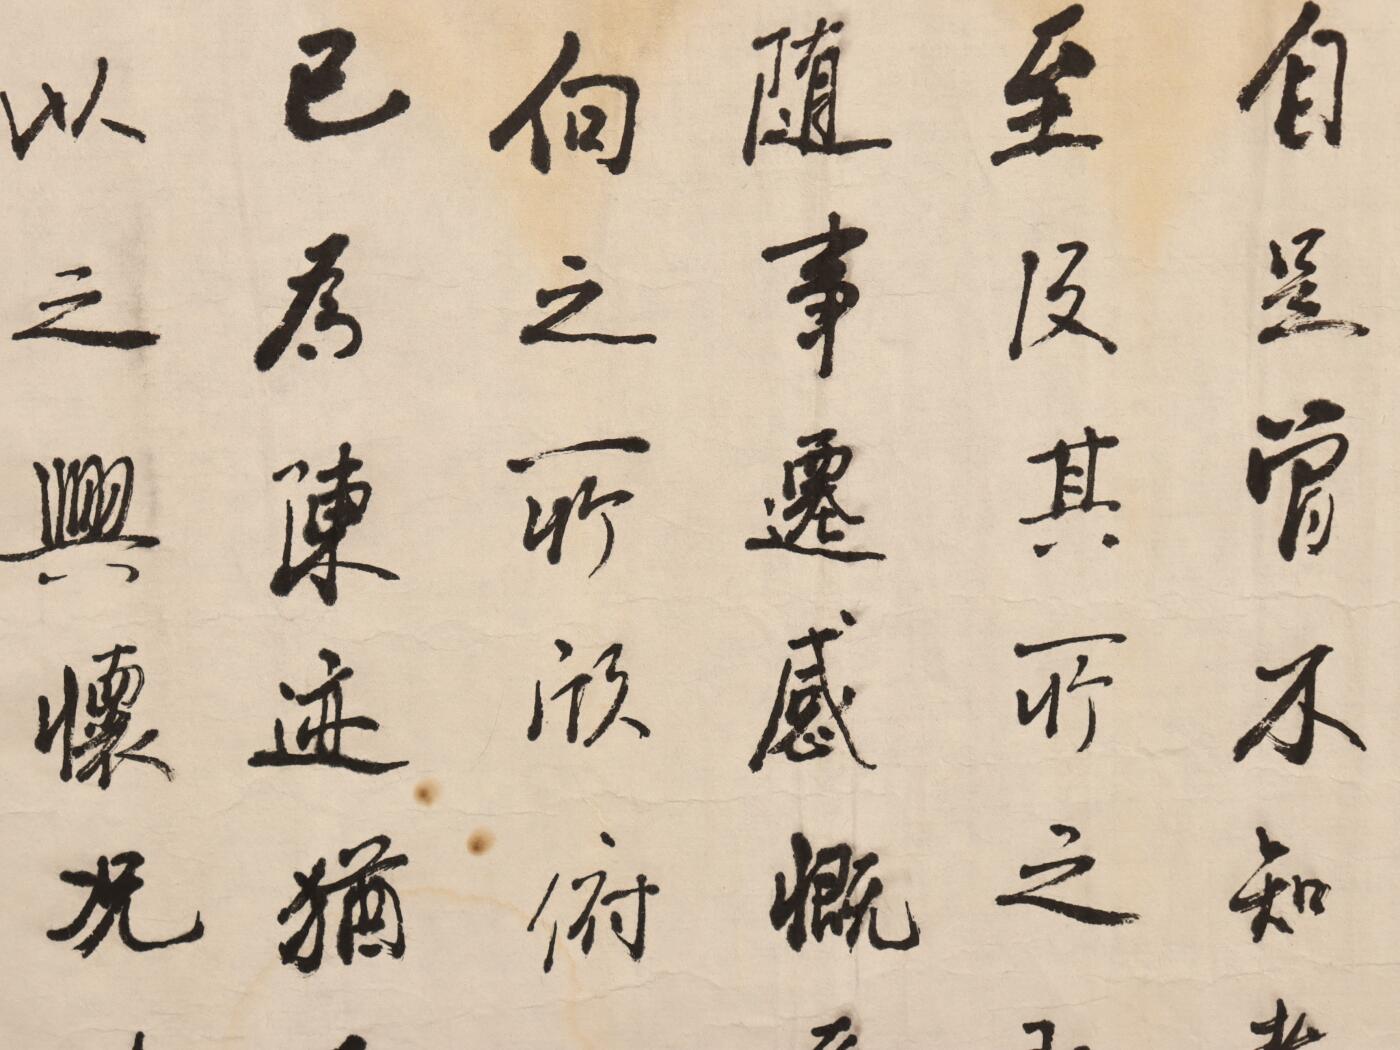 自足曾不知
至及其所之
随事遷感慨
向之所欣俯
已為陳迹猶
以之興懷况